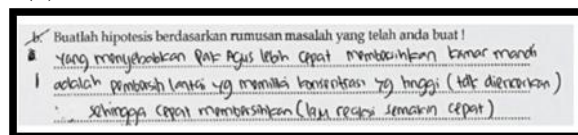 b. Buatlah hipotesis berdasarkan rumusan masalah yang telah anda buat !
yang menyebabkan Pak Agus lebih cepat membersihkan kamar mandi
adalah pembersih lantai yg memiliki konsentrasi yg tinggi (tdk diencerkan)
sehingga cepat membersihkan (laju reaksi semakin cepat)